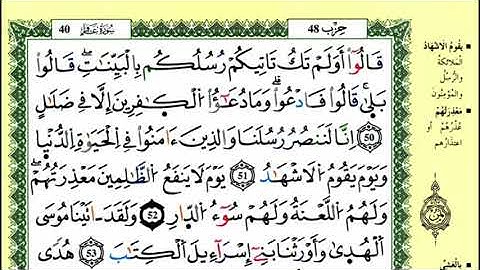 حِزْب 48
سُورَةُ غَافِر 40
قَالُوٓاْ أَوَلَمْ تَكُ تَاتِيكُمْ رُسُلُكُم بِالْبَيِّنَٰتِ قَالُواْ
بَلَىٰ قَالُواْ فَادْعُواْ وَمَا دُعَٰٓؤُاْ الْكَٰفِرِينَ إِلَّا فِي ضَلَٰلٍ
50 إِنَّا لَنَنصُرُ رُسُلَنَا وَالذِينَ ءَامَنُواْ فِي الْحَيَوٰةِ الدُّنْيَا
وَيَوْمَ يَقُومُ الَاشْهَٰدُ 51 يَوْمَ لَا يَنفَعُ الظَّٰلِمِينَ مَعْذِرَتُهُمْ
وَلَهُمُ اللَّعْنَةُ وَلَهُمْ سُوٓءُ الدّ۪ارِ 52 وَلَقَدَ اتَيْنَا مُوسَى
الْهُدَىٰ وَأَوْرَثْنَا بَنِيٓ إِسْرَآءِيلَ الْكِتَٰبَ 53 هُدًى
يَقُومُ الَاشْهَادُ
المَلائكةُ
والرُّسُلُ
والمُؤْمِنُونَ
مَعْذِرَتُهُمْ
عُذْرُهُمْ أو
اعْتِذَارُهُمْ
بِالْعَشِيِّ